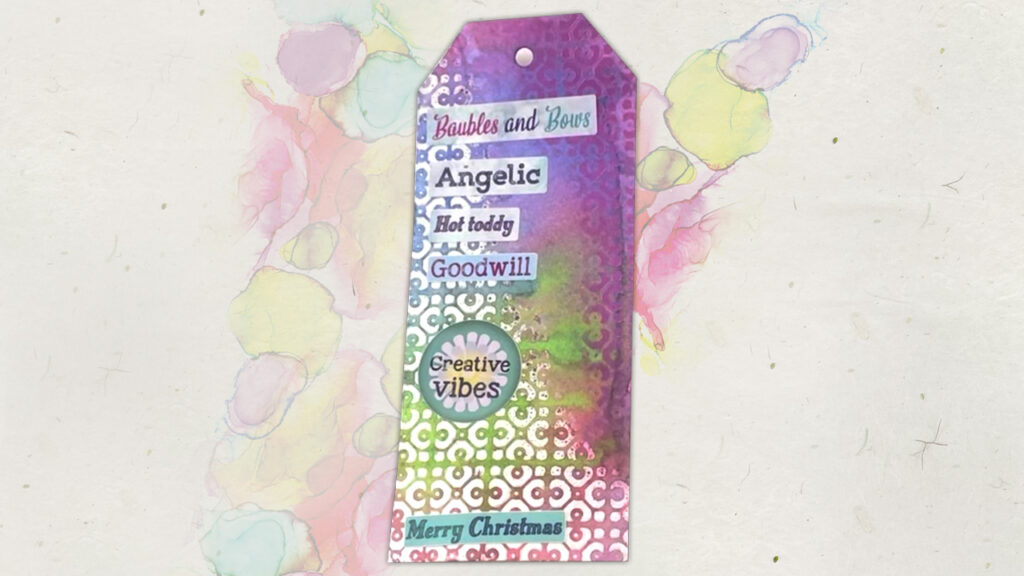 Baubles and Bows
Angelic
Hot toddy
Goodwill
Creative
vibes
Merry Christmas